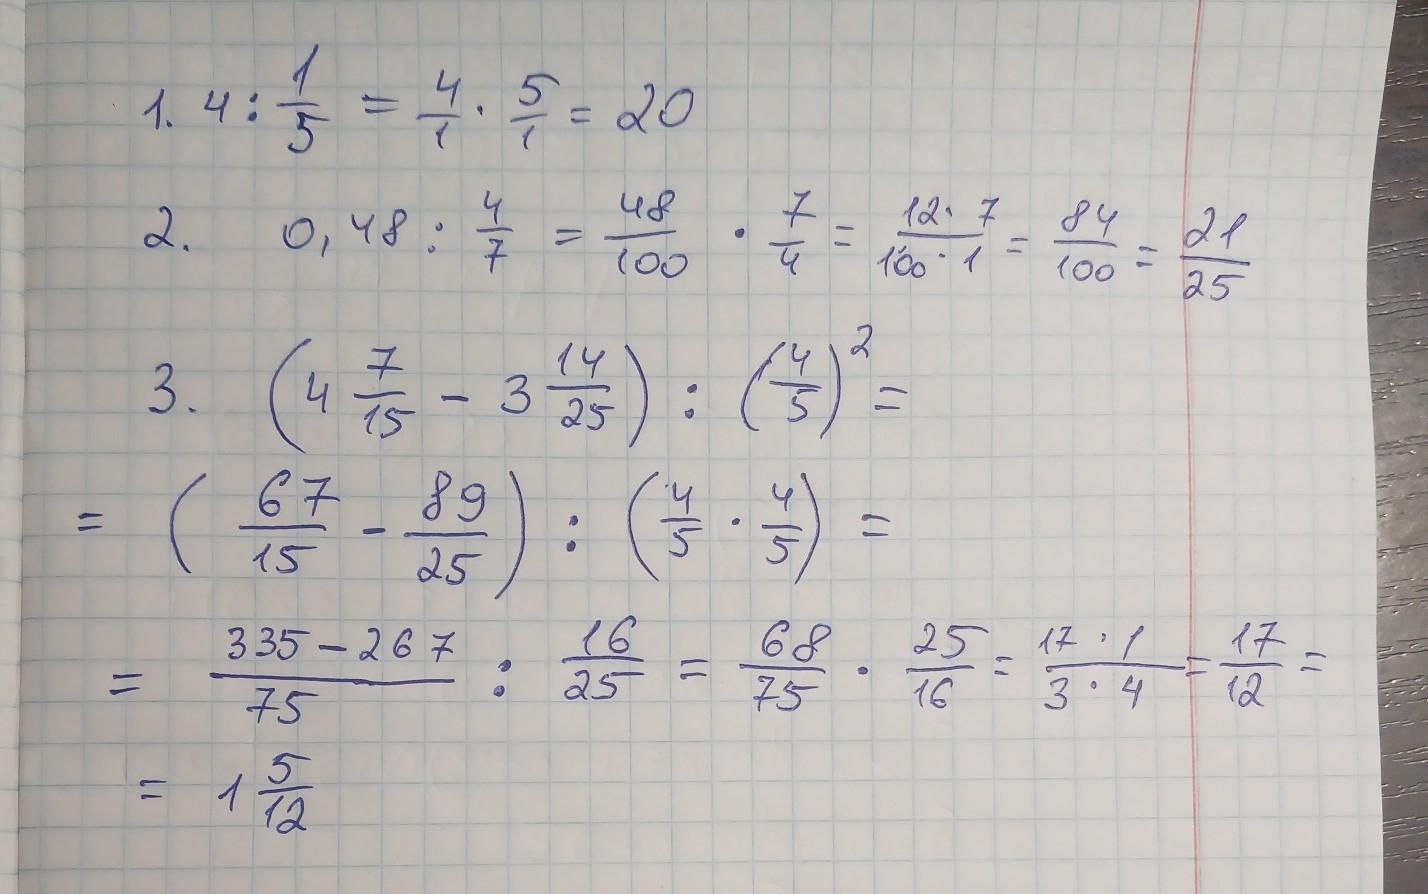 1. 4 : 1/5 = 4/1 · 5/1 = 20
2. 0,48 : 4/7 = 48/100 · 7/4 = 12·7/100·1 = 84/100 = 21/25
3. (4 7/15 - 3 14/25) : (4/5)² =
= (67/15 - 89/25) : (4/5 · 4/5) =
= 335-267/75 : 16/25 = 68/75 · 25/16 = 17·1/3·4 = 17/12 =
= 1 5/12